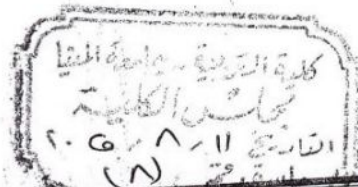 كلية التربية - جامعة المنيا
مجلس الكلية
التاريخ ١١ / ٨ / ٢٠٠٥
(٨)